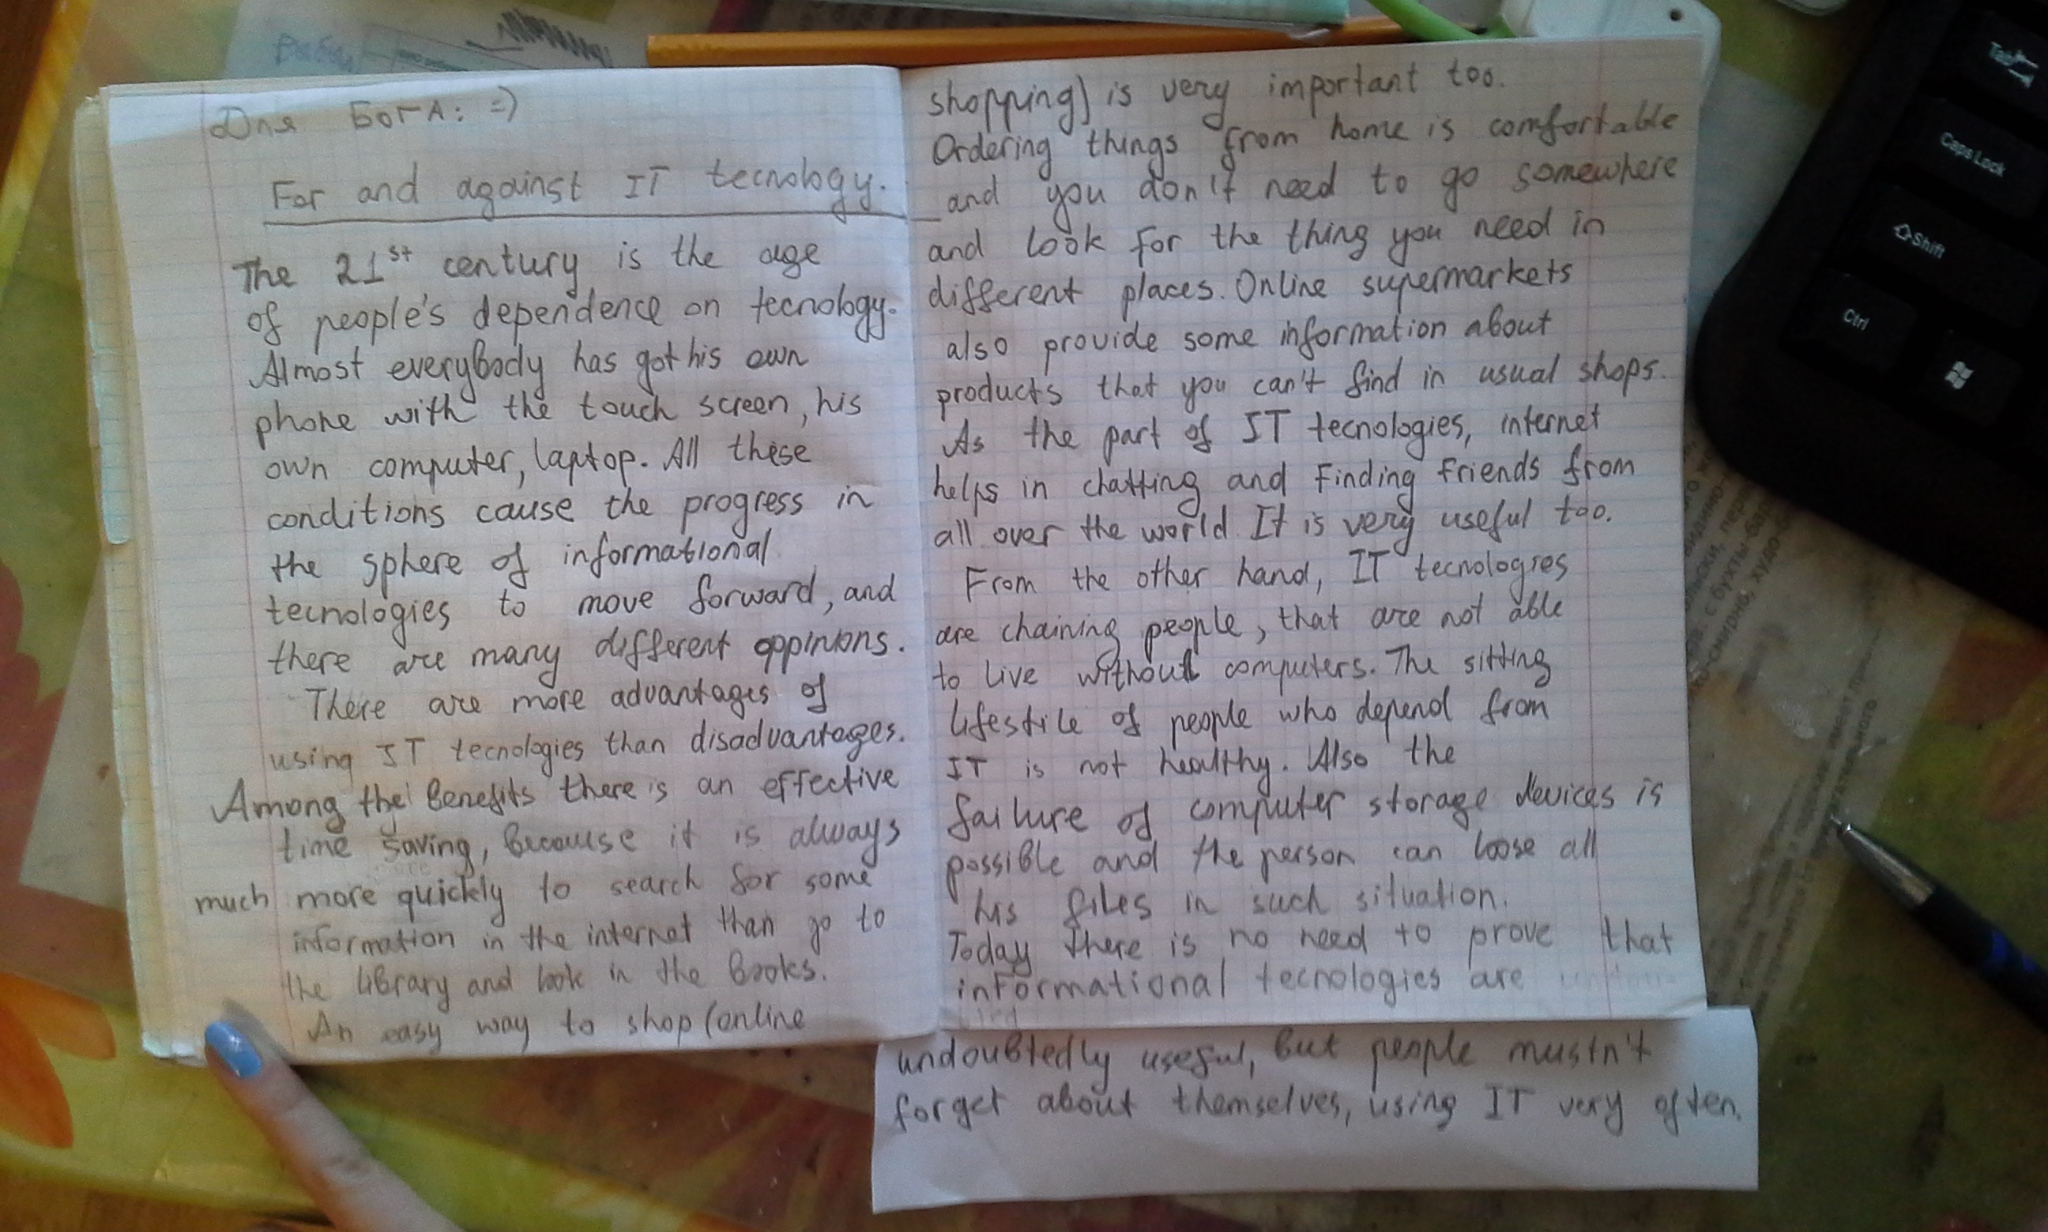 Для БогА: =)
For and against IT tecnology.
The 21st century is the age
of people's dependence on tecnology.
Almost everybody has got his own
phone with the touch screen, his
own computer, laptop. All these
conditions cause the progress in
the sphere of informational
tecnologies to move forward, and
there are many different oppinions.
There are more advantages of
using IT tecnologies than disadvantages.
Among the benefits there is an effective
time saving, because it is always
much more quickly to search for some
information in the internet than go to
the library and look in the books.
An easy way to shop (online
shopping) is very important too.
Ordering things from home is comfortable
and you don't need to go somewhere
and look for the thing you need in
different places. Online supermarkets
also provide some information about
products that you can't find in usual shops.
As the part of IT tecnologies, internet
helps in chatting and finding friends from
all over the world. It is very useful too.
From the other hand, IT tecnologies
are chaining people, that are not able
to live without computers. The sitting
lifestile of people who depend from
IT is not healthy. Also the
failure of computer storage devices is
possible and the person can loose all
his files in such situation.
Today there is no need to prove that
informational tecnologies are
undoubtedly useful, but people mustn't
forget about themselves, using IT very often.
Tab
Caps Lock
Shift
Ctrl